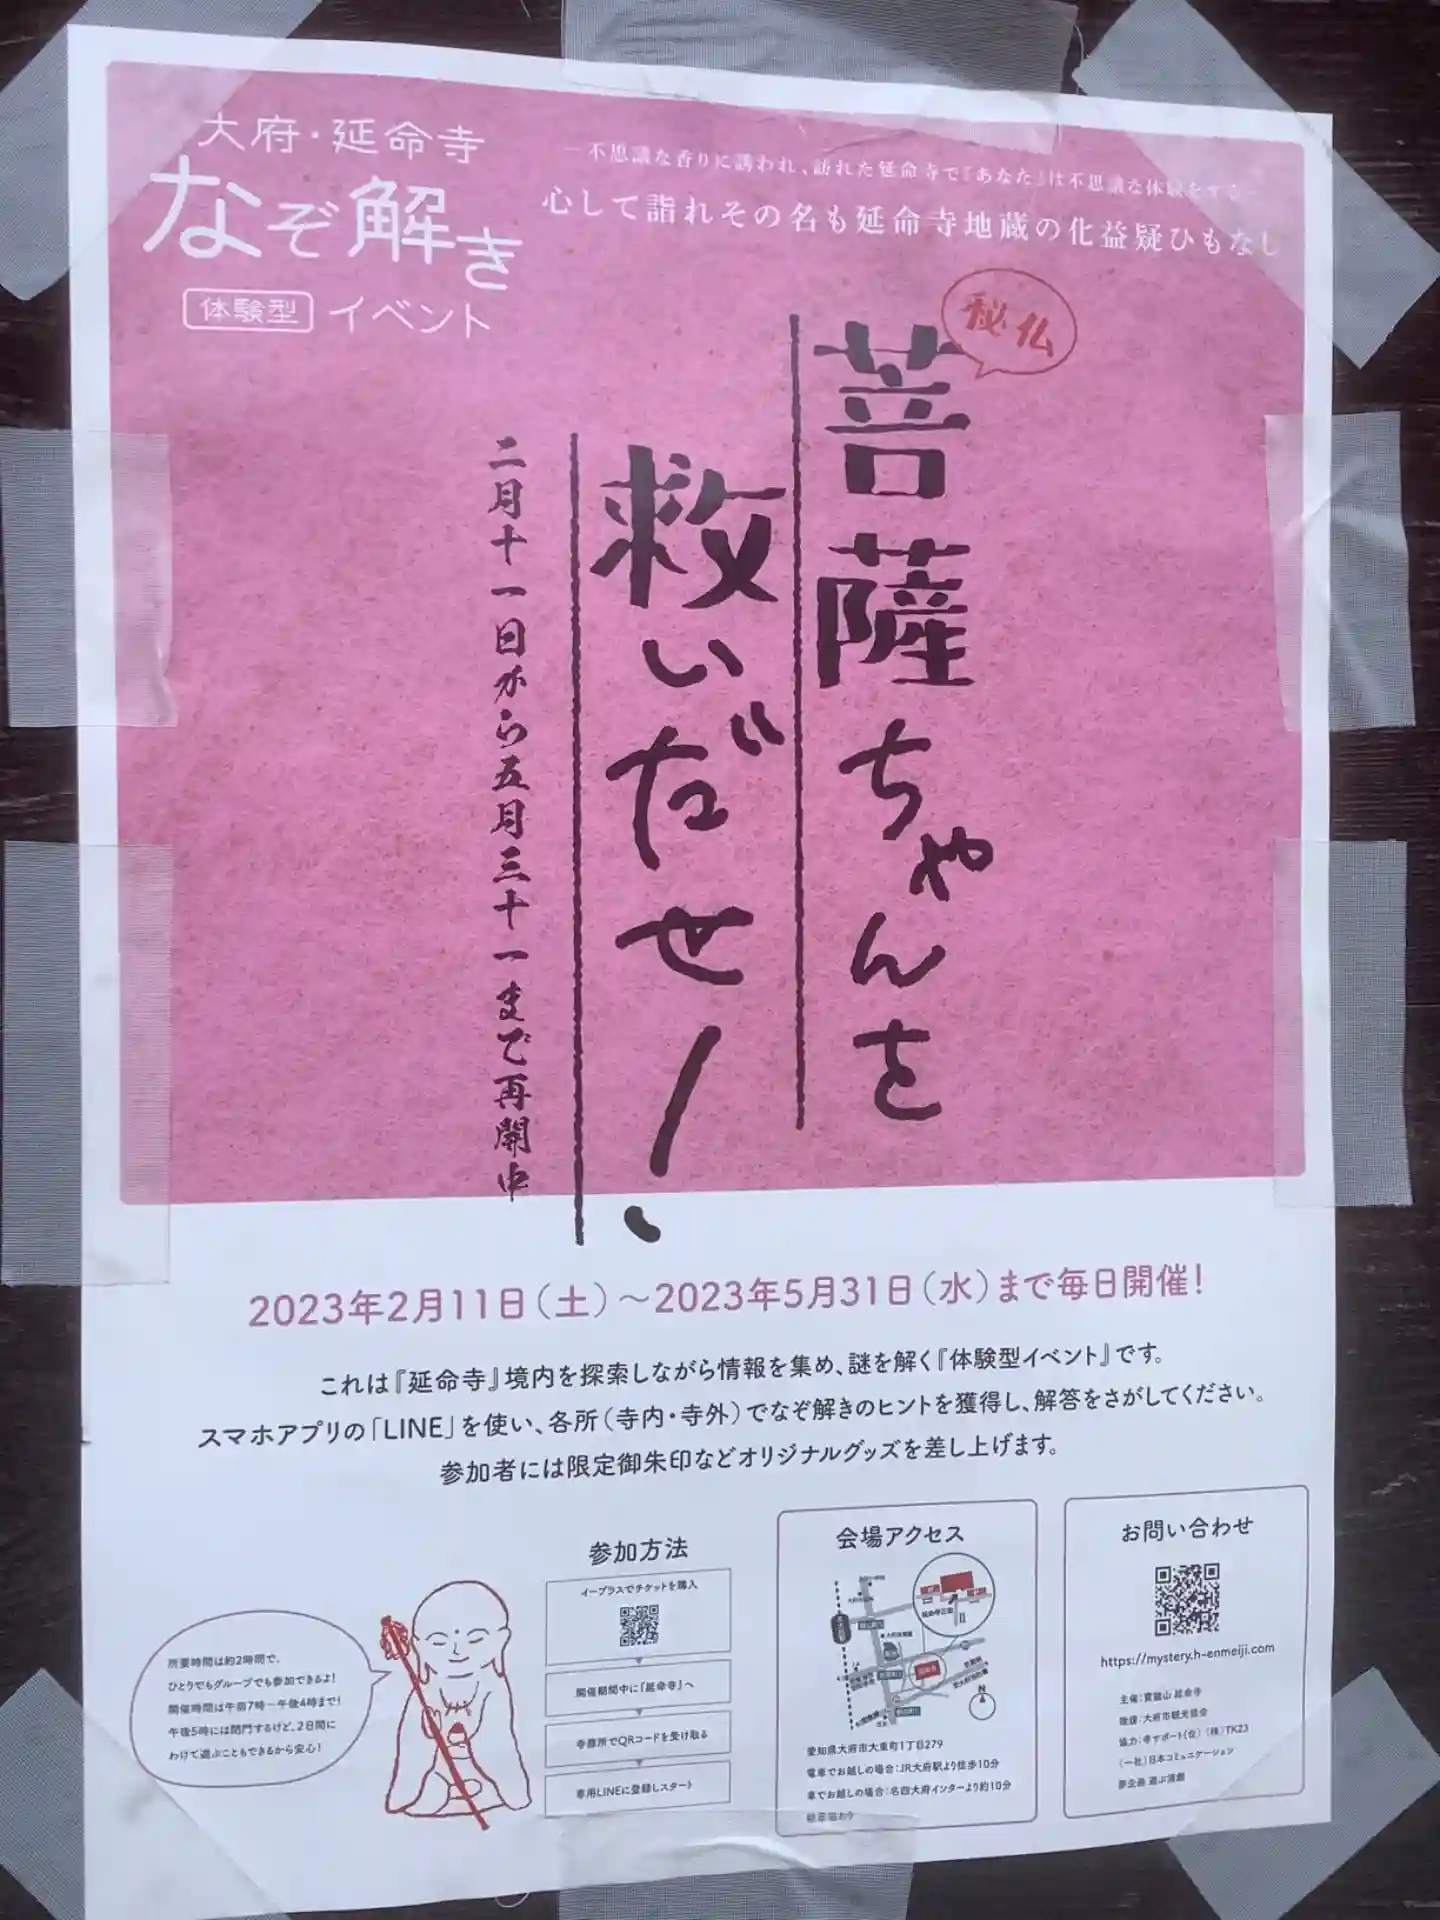 大府・延命寺
なぞ解き
体験型 イベント
―不思議な香りに誘われ、訪れた延命寺で『あなた』は不思議な体験をする―
心して詣れその名も延命寺地蔵の化益疑ひもなし
秘仏
菩薩ちゃんを
救いだせ!
二月十一日から五月三十一まで再開中
2023年2月11日(土)～2023年5月31日(水)まで毎日開催!
これは『延命寺』境内を探索しながら情報を集め、謎を解く『体験型イベント』です。
スマホアプリの「LINE」を使い、各所(寺内・寺外)でなぞ解きのヒントを獲得し、解答をさがしてください。
参加者には限定御朱印などオリジナルグッズを差し上げます。
所要時間は約2時間で、
ひとりでもグループでも参加できるよ!
開催時間は午前7時～午後4時まで!
午後5時には閉門するけど、2日間に
わけて遊ぶこともできるから安心!
参加方法
イープラスでチケットを購入
開催期間中に「延命寺」へ
寺務所でQRコードを受け取る
専用LINEに登録しスタート
会場アクセス
N
愛知県大府市大東町1丁目279
電車でお越しの場合:JR大府駅より徒歩10分
車でお越しの場合:名四大府インターより約10分
駐車場あり
お問い合わせ
https://mystery.h-enmeiji.com
主催:寶龍山 延命寺
後援:大府市観光協会
協力:寺サポート(合) (株)TK23
(一社)日本コミュニケーション